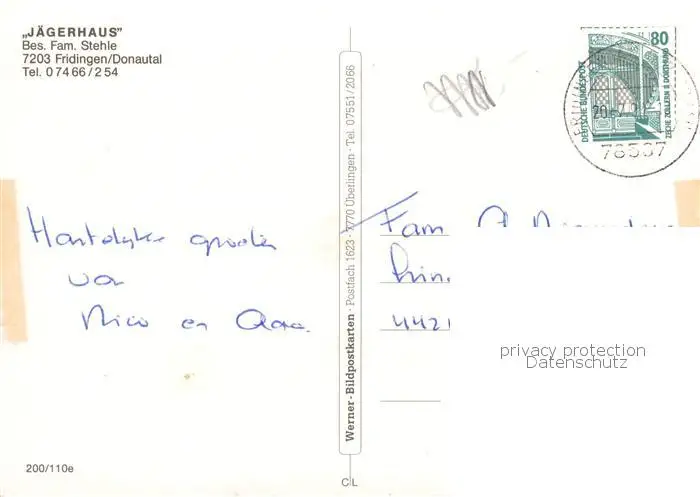 „JÄGERHAUS”
Bes. Fam. Stehle
7203 Fridingen/Donautal
Tel. 0 74 66 / 2 54
Hartelijke groeten
van
Nico en
200/110e
Werner-Bildpostkarten · Postfach 1623 · 7770 Überlingen · Tel. 07551/2066
CL
80
DEUTSCHE BUNDESPOST
ZECHE ZOLLERN II DORTMUND
78567
Fam
Prin
4421
privacy protection
Datenschutz